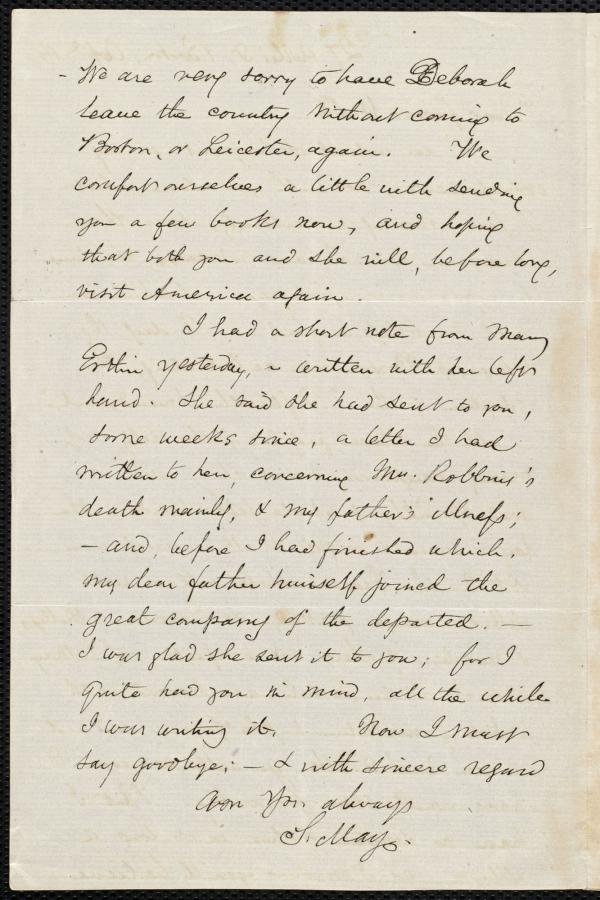 - We are very sorry to have Deborah
leave the country without coming to
Boston, or Leicester, again. We
comfort ourselves a little with sending
you a few books now, and hoping
that both you and she will, before long,
visit America again.
I had a short note from Mary
Estlin yesterday, - written with her left
hand. She said she had sent to you,
some weeks since, a letter I had
written to her, concerning Mrs. Robbins's
death mainly, & my father's illness;
- and, before I had finished which,
my dear father himself joined the
great company of the departed. -
I was glad she sent it to you; for I
quite had you in mind, all the while
I was writing it. Now I must
say goodbye; - & with sincere regard
am Yrs. always
S. May.